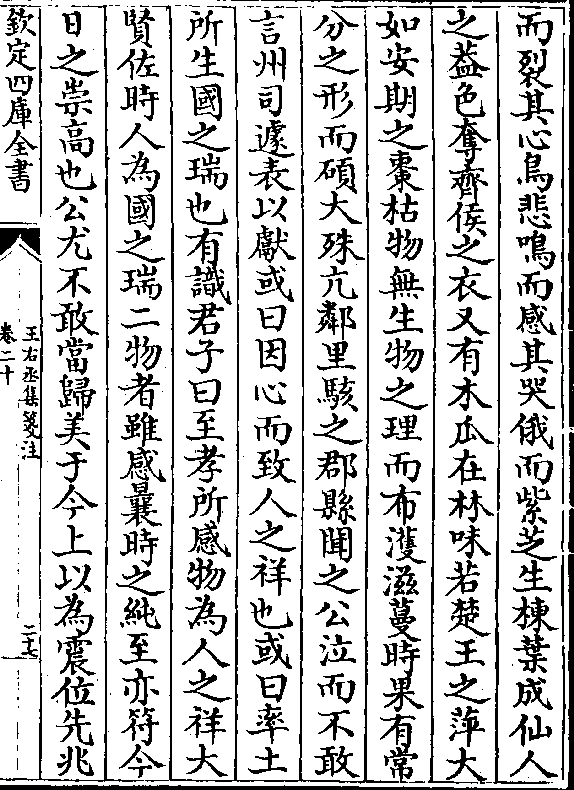 而裂其心鳥悲鳴而感其哭俄而紫芝生棟葉成仙人
之葢色奪齊侯之衣又有木瓜在林味若楚王之萍大
如安期之棗枯物無生物之理而布濩滋蔓時果有常
分之形而碩大殊亢鄰里駭之郡縣聞之公泣而不敢
言州司遽表以獻或曰因心而致人之祥也或曰率土
所生國之瑞也有識君子曰至孝所感物為人之祥大
賢佐時人為國之瑞二物者雖感曩時之純至亦符今
日之崇高也公尤不敢當歸美于今上以為震位先兆
欽定四庫全書
王右丞集箋注
卷二十
二七